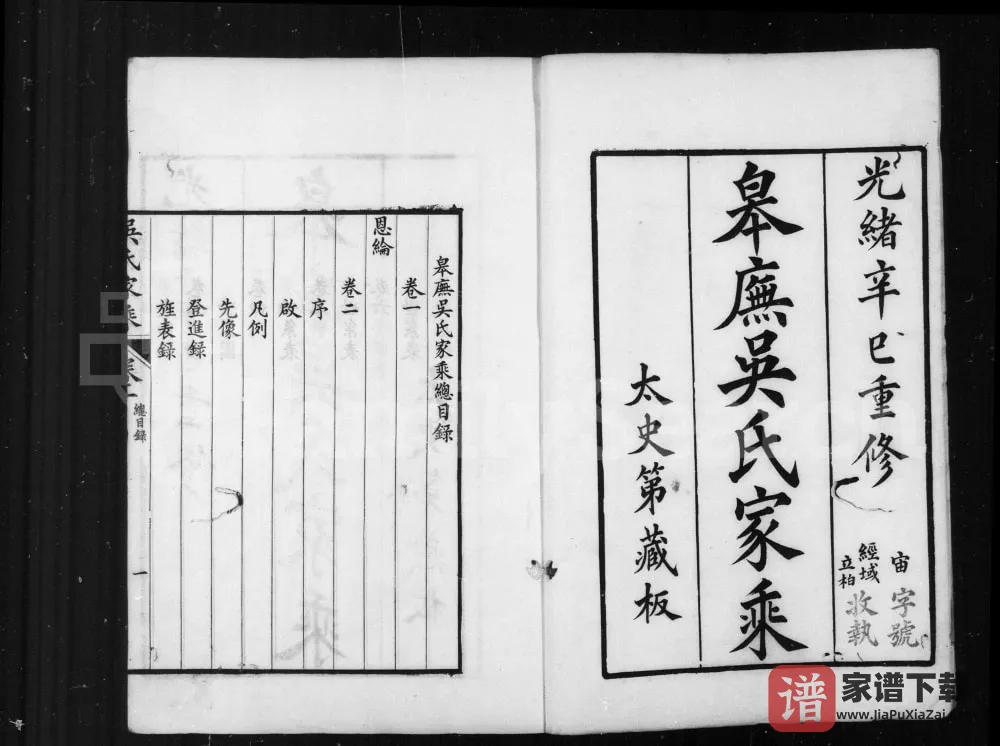 光緒辛巳重修
宙字號
經域
立柏
收執
皋廡吳氏家乘
太史第藏板
皋廡吳氏家乘總目錄
卷一
恩綸
卷二
序
啟
凡例
先像
登進錄
旌表錄
吳氏家乘
總目錄
一
谱
家谱下载
www.JiaPuXiaZai.com